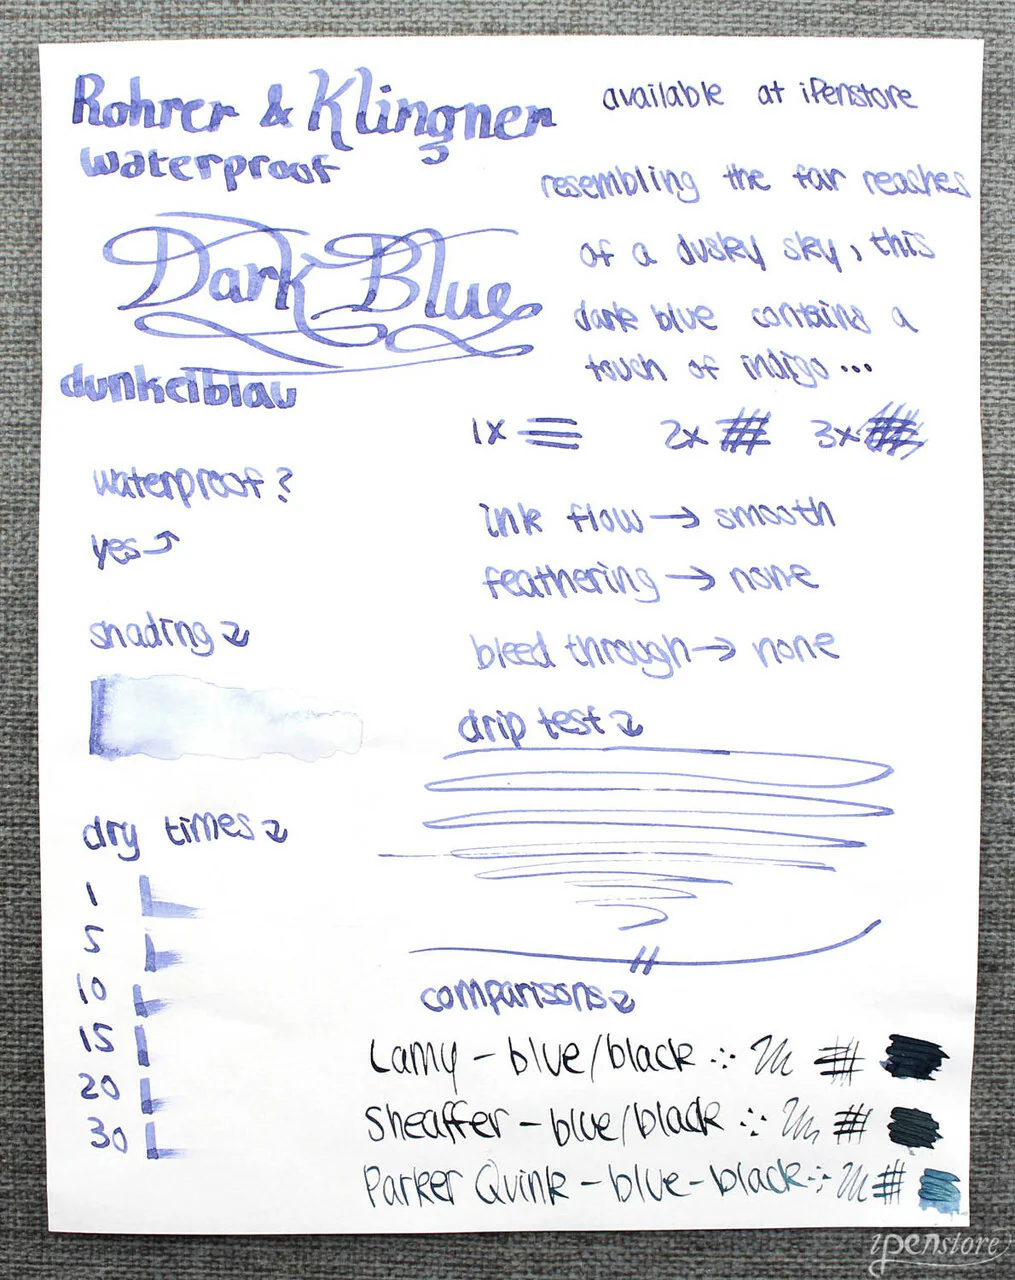 Rohrer & Klingner
waterproof
available at iPenstore
Dark Blue
dunkelblau
resembling the far reaches
of a dusky sky, this
dark blue contains a
touch of indigo...
1x 2x 3x
waterproof?
yes
ink flow → smooth
feathering → none
bleed through → none
shading
drip test
dry times
1
5
10
15
20
30
comparisons
Lamy - blue/black
Sheaffer - blue/black
Parker Quink - blue-black
ipenstore